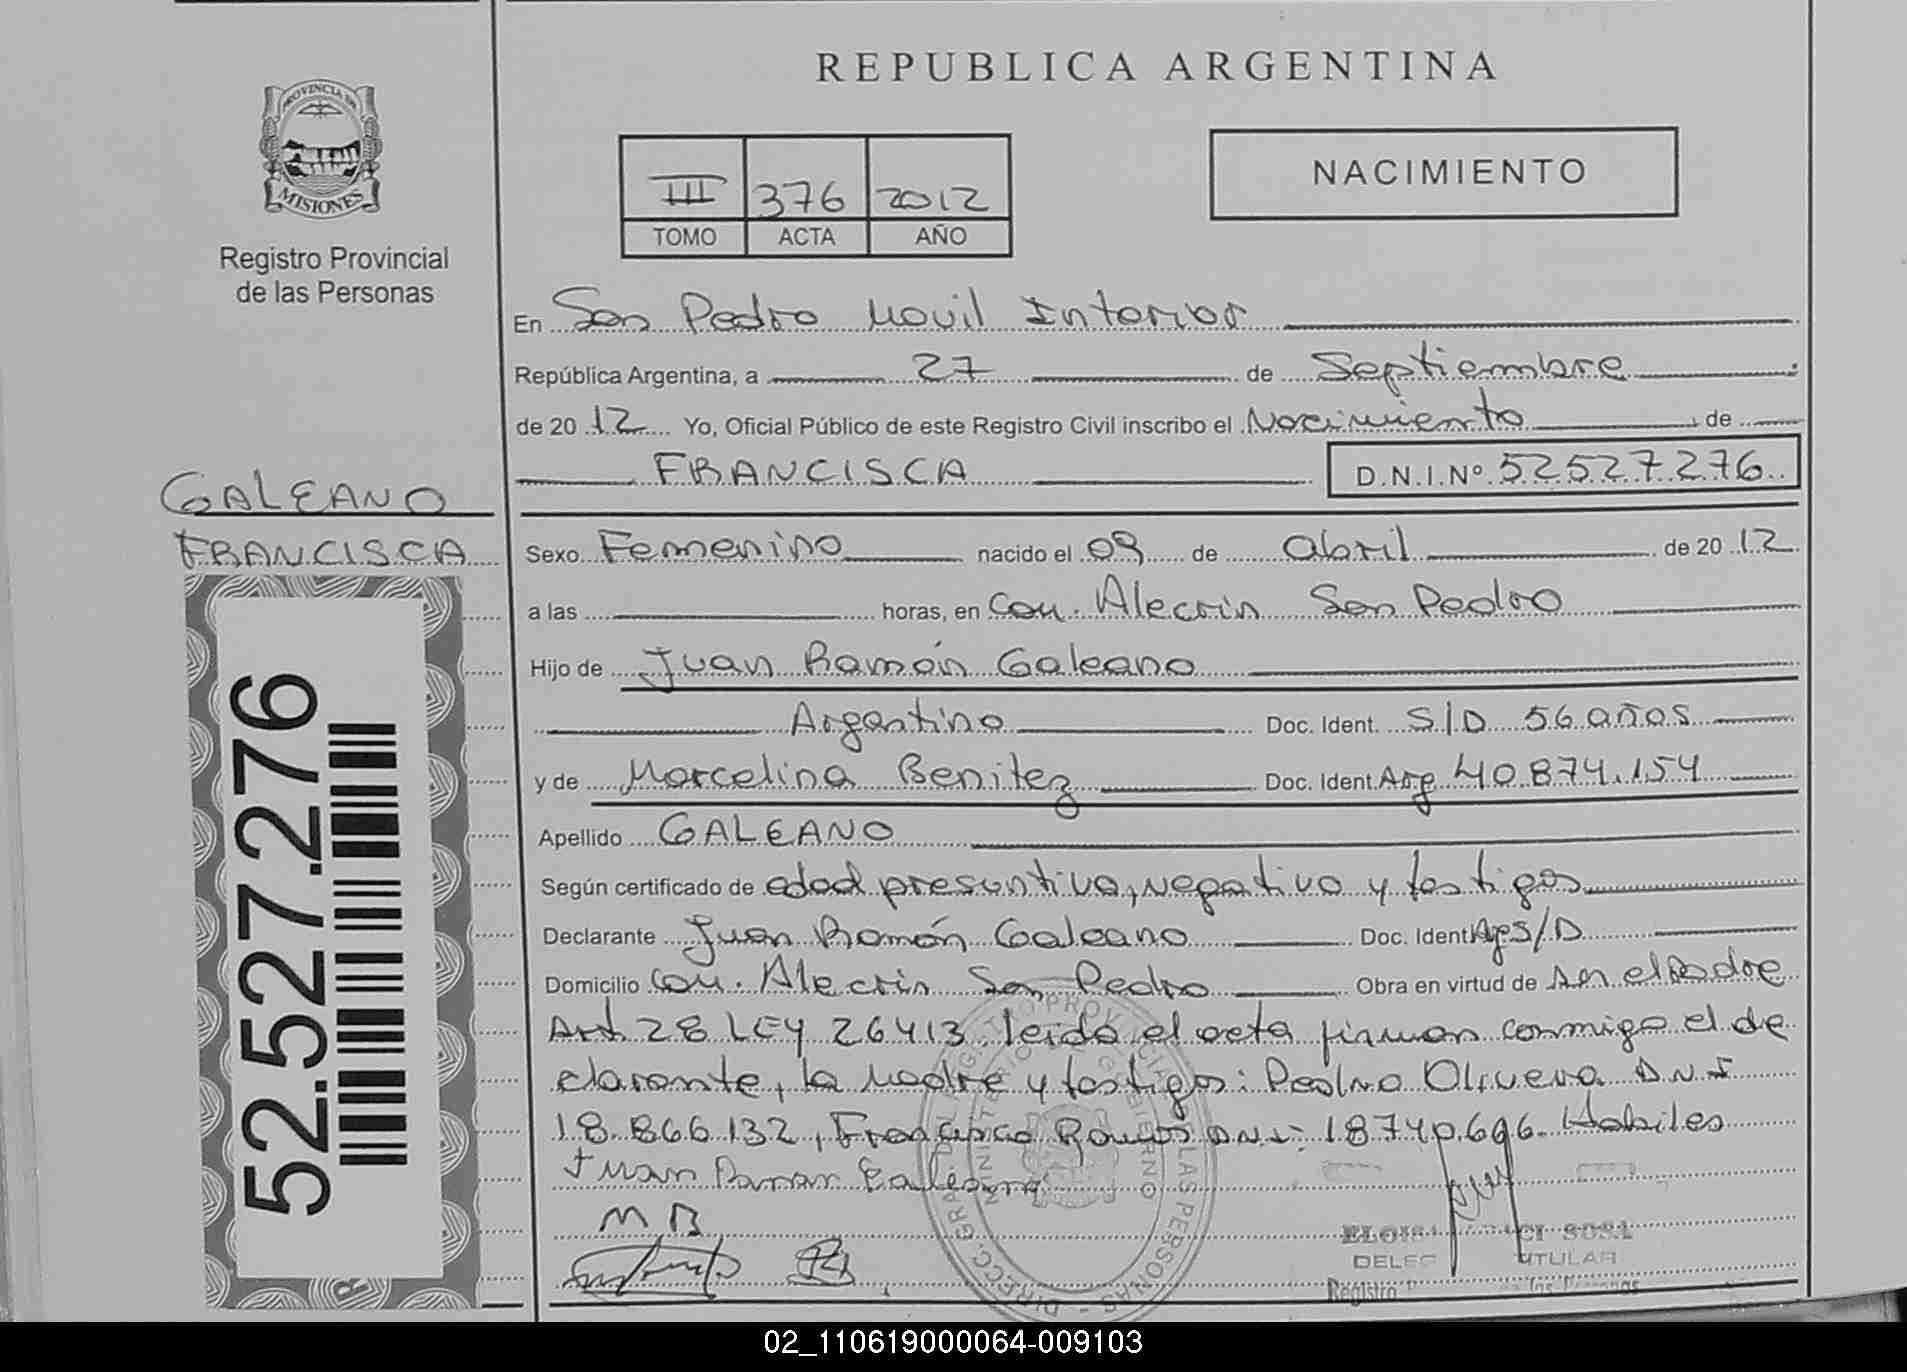 REPUBLICA ARGENTINA
PROVINCIA DE
MISIONES
Registro Provincial
de las Personas
III 376 2012
TOMO ACTA AÑO
NACIMIENTO
En San Pedro Movil Interior
República Argentina, a 27 de Septiembre
de 2012 Yo, Oficial Público de este Registro Civil inscribo el Nacimiento de
FRANCISCA D.N.I.Nº 52527276
GALEANO
FRANCISCA
52.527.276
Sexo Femenino nacido el 09 de abril de 2012
a las horas, en Com. Alecrin San Pedro
Hijo de Juan Ramón Galeano
Argentino Doc. Ident. S/D 56 años
y de Marcelina Benitez Doc. Ident Arg 40.874.154
Apellido GALEANO
Según certificado de edad presuntiva, negativo y testigos
Declarante Juan Ramón Galeano Doc. Ident Arg S/D
Domicilio Com. Alecrin San Pedro Obra en virtud de ser el Padre
Art. 28 LEY 26413 leida el acta firman conmigo el de
clarante, la Madre y testigos: Pedro Olivera D.N.I
18.866.132, Francisco Ramos D.N.I: 18740.696. Habiles
Juan Raman Galeano
M B
DIRECC. GRAL. DEL REGISTRO PROVINCIAL DE LAS PERSONAS
MINISTERIO DE GOBIERNO
SOSA
TITULAR
Registro
02_110619000064-009103